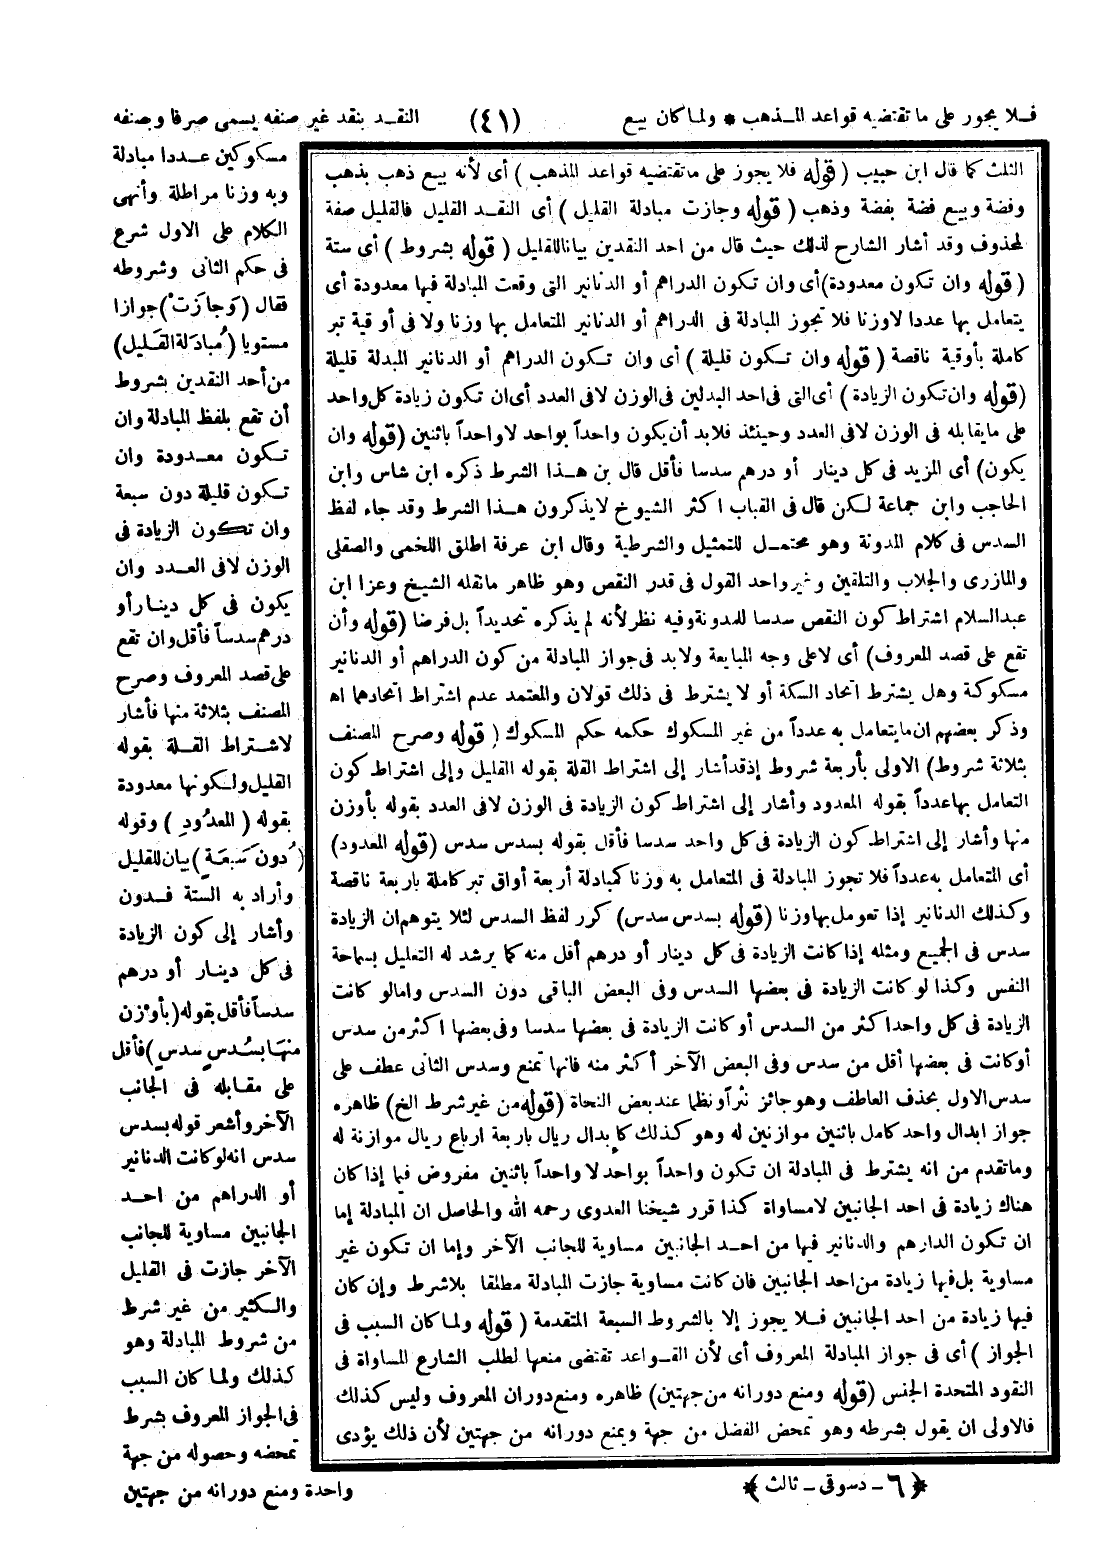 فـلا يجوز على ما تقتضيه قواعد المـذهب * ولما كان بيع
(٤١)
النقـد بنقد غير صنفه يسمى صرفا وبصنفه
مسكوكين عـددا مبادلة
وبه وزنا مراطلة وأنهى
الكلام على الاول شرع
فى حكم الثانى وشروطه
فقال (وَجازَتْ) جوازا
مستويا (مُبادَلة القَـليل)
من أحد النقدين بشروط
أن تقع بلفظ المبادلة وان
تـكون معـدودة وان
تـكون قليلة دون سبعة
وان تكون الزيادة فى
الوزن لافى العـدد وان
يكون فى كل دينـار أو
درهم سدساً فأقل وان تقع
على قصد المعروف وصرح
المصنف بثلاثة منها فأشار
لاشـتراط القـلة بقوله
القليل ولـكونها معدودة
بقوله (المعدُودِ) وقوله
(دُونَ سَبعَةٍ) بيان للقليل
وأراد به الستة فـدون
وأشار إلى كون الزيادة
فى كل دينـار أو درهم
سدساً فأقل بقوله (بأوْزنَ
منهَا بسُدسٍ سدسٍ) فأقل
على مقـابله فى الجانب
الآخر وأشعر قوله بسدس
سدس انه لو كانت الدنانير
أو الدراهم من احـد
الجانبين مساوية للجانب
الآخر جازت فى القليل
والكثير من غير شرط
من شروط المبادلة وهو
كذلك ولما كان السبب
فى الجواز المعروف بشرط
تمحضه وحصوله من جهة
واحدة ومنع دورانه من جهتين
الثلث كما قال ابن حبيب (قوله فلا يجوز على ما تقتضيه قواعد المذهب) أى لأنه بيع ذهب بذهب
وفضة وبيع فضة بفضة وذهب (قوله وجازت مبادلة القليل) أى النقـد القليل فالقليل صفة
لمحذوف وقد أشار الشارح لذلك حيث قال من احد النقدين بيانا للقليل (قوله بشروط) أى ستة
(قوله وان تكون معدودة) أى وان تكون الدراهم أو الدنانير التى وقعت المبادلة فيها معدودة أى
يتعامل بها عددا لا وزنا فلا تجوز المبادلة فى الدراهم أو الدنانير المتعامل بها وزنا ولا فى أوقية تبر
كاملة بأوقية ناقصة (قوله وان تـكون قليلة) أى وان تـكون الدراهم أو الدنانير المبدلة قليلة
(قوله وان تكون الزيادة) أى التى فى احد البدلين فى الوزن لافى العدد أى ان تكون زيادة كل واحد
على ما يقابله فى الوزن لافى العدد وحينئذ فلابد أن يكون واحداً بواحد لا واحداً باثنين (قوله وان
يكون) أى المزيد فى كل دينار أو درهم سدسا فأقل قال بن هـذا الشرط ذكره ابن شاس وابن
الحاجب وابن جماعة لـكن قال فى القباب اكثر الشيوخ لايذكرون هـذا الشرط وقد جاء لفظ
السدس فى كلام المدونة وهو محتمـل للتمثيل والشرطية وقال ابن عرفة اطلق اللخمى والصقلى
والمازرى والجلاب والتلقين وغير واحد القول فى قدر النقص وهو ظاهر ما نقله الشيخ وعزا ابن
عبدالسلام اشتراط كون النقص سدسا للمدونة وفيه نظر لأنه لم يذكره تحديداً بل فرضا (قوله وأن
تقع على قصد المعروف) أى لا على وجه المبايعة ولابد فى جواز المبادلة من كون الدراهم أو الدنانير
مسكوكة وهل يشترط اتحاد السكة أو لا يشترط فى ذلك قولان والمعتمد عدم اشتراط اتحادهما اه
وذكر بعضهم ان ما يتعامل به عدداً من غير المسكوك حكمه حكم المسكوك (قوله وصرح المصنف
بثلاثة شروط) الاولى بأربعة شروط إذ قد أشار إلى اشتراط القلة بقوله القليل وإلى اشتراط كون
التعامل بها عدداً بقوله المعدود وأشار إلى اشتراط كون الزيادة فى الوزن لافى العدد بقوله بأوزن
منها وأشار إلى اشتراط كون الزيادة فى كل واحد سدسا فأقل بقوله بسدس سدس (قوله المعدود)
أى المتعامل به عدداً فلا تجوز المبادلة فى المتعامل به وزنا كمبادلة أربعة أواق تبر كاملة باربعة ناقصة
وكذلك الدنانير إذا تعومل بها وزنا (قوله بسدس سدس) كرر لفظ السدس لئلا يتوهم ان الزيادة
سدس فى الجميع ومثله إذا كانت الزيادة فى كل دينار أو درهم أقل منه كما يرشد له التعليل بسماحة
النفس وكذا لو كانت الزيادة فى بعضها السدس وفى البعض الباقى دون السدس وامالو كانت
الزيادة فى كل واحد اكثر من السدس أو كانت الزيادة فى بعضها سدسا وفى بعضها اكثر من سدس
أو كانت فى بعضها أقل من سدس وفى البعض الآخر أكثر منه فانها تمنع وسدس الثانى عطف على
سدس الاول بحذف العاطف وهو جائز نثراً ونظما عند بعض النحاة (قوله من غير شرط الخ) ظاهره
جواز ابدال واحد كامل باثنين موازنين له وهو كذلك كابدال ريال باربعة ارباع ريال موازنة له
وما تقدم من انه يشترط فى المبادلة ان تكون واحداً بواحد لا واحداً باثنين مفروض فيما إذا كان
هناك زيادة فى احد الجانبين لا مساواة كذا قرر شيخنا العدوى رحمه الله والحاصل ان المبادلة إما
ان تكون الدارهم والدنانير فيها من احـد الجانبين مساوية للجانب الآخر وإما ان تكون غير
مساوية بل فيها زيادة من احد الجانبين فان كانت مساوية جازت المبادلة مطلقا بلا شرط وإن كان
فيها زيادة من احد الجانبين فـلا يجوز إلا بالشروط السبعة المتقدمة (قوله ولما كان السبب فى
الجواز) أى فى جواز المبادلة المعروف أى لأن القـواعد تقتضى منعها لطلب الشارع المساواة فى
النقود المتحدة الجنس (قوله ومنع دورانه من جهتين) ظاهره ومنع دوران المعروف وليس كذلك
فالاولى ان يقول بشرطه وهو تمحض الفضل من جهة ويمنع دورانه من جهتين لأن ذلك يؤدى
﴿٦ - دسوقى - ثالث﴾